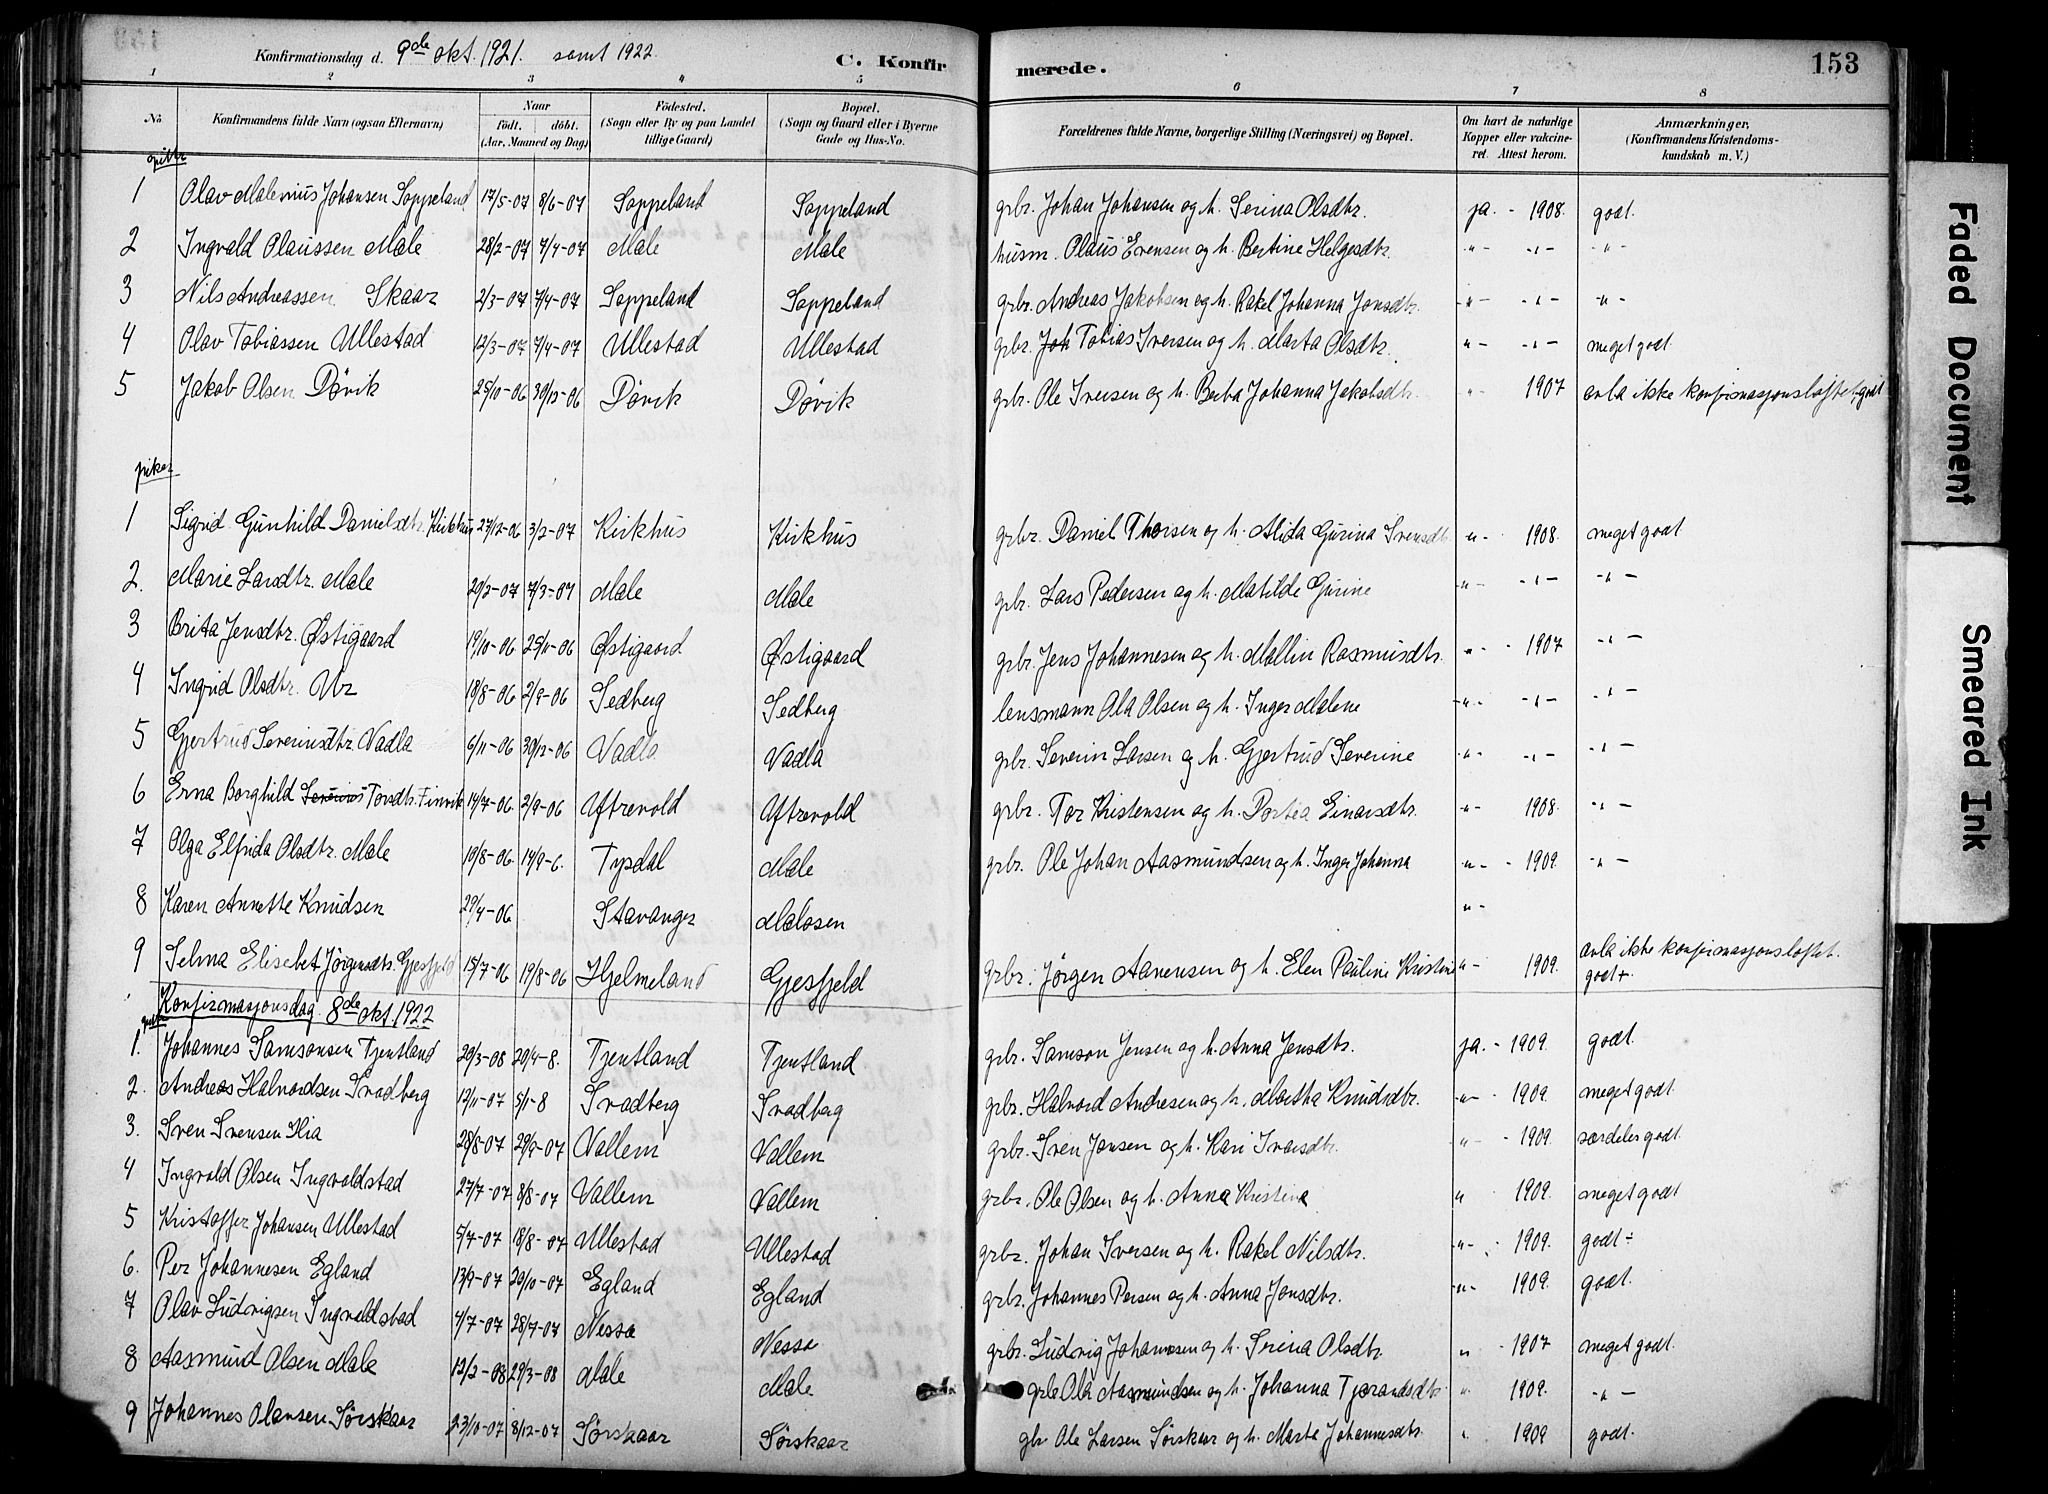 Konfirmationsdag d. 9de okt. 1921. samt 1922.
C. Konfirmerede.
153
1 2 3 4 5 6 7 8
No. Konfirmandens fulde Navn (ogsaa Efternavn) Naar födt. döbt. (Aar, Maaned og Dag) Födested. (Sogn eller By og paa Landet tillige Gaard) Bopæl. (Sogn og Gaard eller i Byerne Gade og Hus-No. Forældrenes fulde Navne, borgerlige Stilling (Næringsvei) og Bopæl. Om havt de naturlige Kopper eller vakcineret. Attest herom. Anmærkninger. (Konfirmandens Kristendomskundskab m. V.)
gutter
1 Olav Johansen Soppeland 17/5-07 8/6-07 Soppeland Soppeland grbr. Johan Johansen og h. Serina Olsdtr. ja. - 1908. godt.
2 Ingvald Olaussen Mæle 28/2-07 7/4-07 Mæle Mæle husm. Olaus Evensen og h. Bertine Helgesdtr. -"- -"- -"-
3 Nils Andreassen Skaar 2/3-07 7/4-07 Soppeland Soppeland grbr. Andreas Jakobsen og h. Rakel Johanna Jonsdtr. -"- -"- -"-
4 Olav Tobiassen Ullestad 12/3-07 7/4-07 Ullestad Ullestad grbr. Tobias Iversen og h. Marta Olsdtr. "- -"- meget godt
5 Jakob Olsen Døvik 25/10-06 30/12-06 Døvik Døvik grbr. Ole Iversen og h. Berta Johanna Jakobsdtr. " 1907 avla ikke konfirmasjonsløftet, godt
piker
1 Sigrid Gunhild Danielsdtr. Kirkhus 27/12-06 3/2-07 Kirkhus Kirkhus grbr. Daniel Thorsen og h. Alida Gurina Svensdtr. "- 1908. meget godt
2. Marie Larsdtr. Mæle 20/2-07 7/3-07 Mæle Mæle grbr. Lars Pedersen og h. Matilde Gurine -"- -"- -"-
3 Brita Jensdtr. Østigaard 19/10-06 25/11-06 Østigaard Østigaard grbr. Jens Johannesen og h. Mallin Rasmusdtr. "- 1907 -"-
4 Ingrid Olsdtr. Ur 18/8-06 2/9-06 Sedberg Sedberg lensmann Ola Olsen og h. Inger Malene -"- -"- -"-
5 Gjertrud Severinsdtr. Vadla 6/11-06 30/12-06 Vadla Vadla grbr. Severin Larsen og h. Gjertrud Severine "- -"- -"-
6 Erna Borghild Torsdtr. Finvik 14/7-06 2/9-06 Uftrevold Uftrevold grbr. Tor Kristensen og h. Dortea Einarsdtr. -"- 1908. -"-
7 Olga Elfrida Olsdtr. Mæle 10/8-06. 14/9-6. Tysdal Mæle grbr. Ole Johan Aasmundsen og h. Inger Johanna -"- 1909. -"-
8 Karen Annette Knudsen 29/4-06 Stavanger Mælosen "-
9 Selma Elisebet Jørgensdtr. Gjesfjeld 15/7-06 19/8-06 Hjelmeland Gjesfjeld grbr. Jørgen Aanensen og h. Elen Pauline Kristine "- 1909. avla ikke konfirmasjonsløftet. godt+.
Konfirmasjonsdag 8de okt. 1922
gutter
1. Johannes Samsonsen Tjentland 20/3-08 20/4-8. Tjentland Tjentland grbr. Samson Jensen og h. Anna Jensdtr. ja. - 1909. godt.
2. Andreas Halvordsen Svadberg 12/11-07 5/1-8 Svadberg Svadberg grbr. Halvord Andresen og h. Martha Knudsdtr. -"- 1909. meget godt
3. Sven Svensen Hia 28/8-07 29/9-07 Vallem Vallem grbr. Sven Jansen og h. Kari Ivarsdtr. " - 1909. særdeles godt.
4 Ingvald Olsen Ingvaldstad 27/7-07 8/8-07 Vallem Vallem grbr. Ole Olsen og h. Anna Kristina " 1909. meget godt
5 Kristoffer Johansen Ullestad 5/7-07 18/8-07 Ullestad Ullestad grbr. Johan Iversen og h. Rakel Nilsdtr. -"- 1909. godt÷
6. Per Johannesen Egland 13/9-07 20/10-07 Egland Egland grbr. Johannes Persen og h. Anna Jonsdtr. "- 1909. godt.
7 Olav Ludvigsen Ingvaldstad 4/7-07 28/7-07 Nessa Nessa grbr. Ludvig Johannesen og h. Serina Olsdtr. " - 1907 meget godt.
8 Aasmund Olsen Mæle 12/2-08 29/3-08 Mæle Mæle grbr Ola Aasmundsen og h. Johanna Tjærandsdtr. " 1909. -"-
9 Johannes Olausen Sørskaar 23/10-07 8/12-07 Sørskaar Sørskaar gbr Ole Larsen Sørskaar og h. Marta Johannesdtr. " 1909 godt.
Faded Document
Smeared Ink